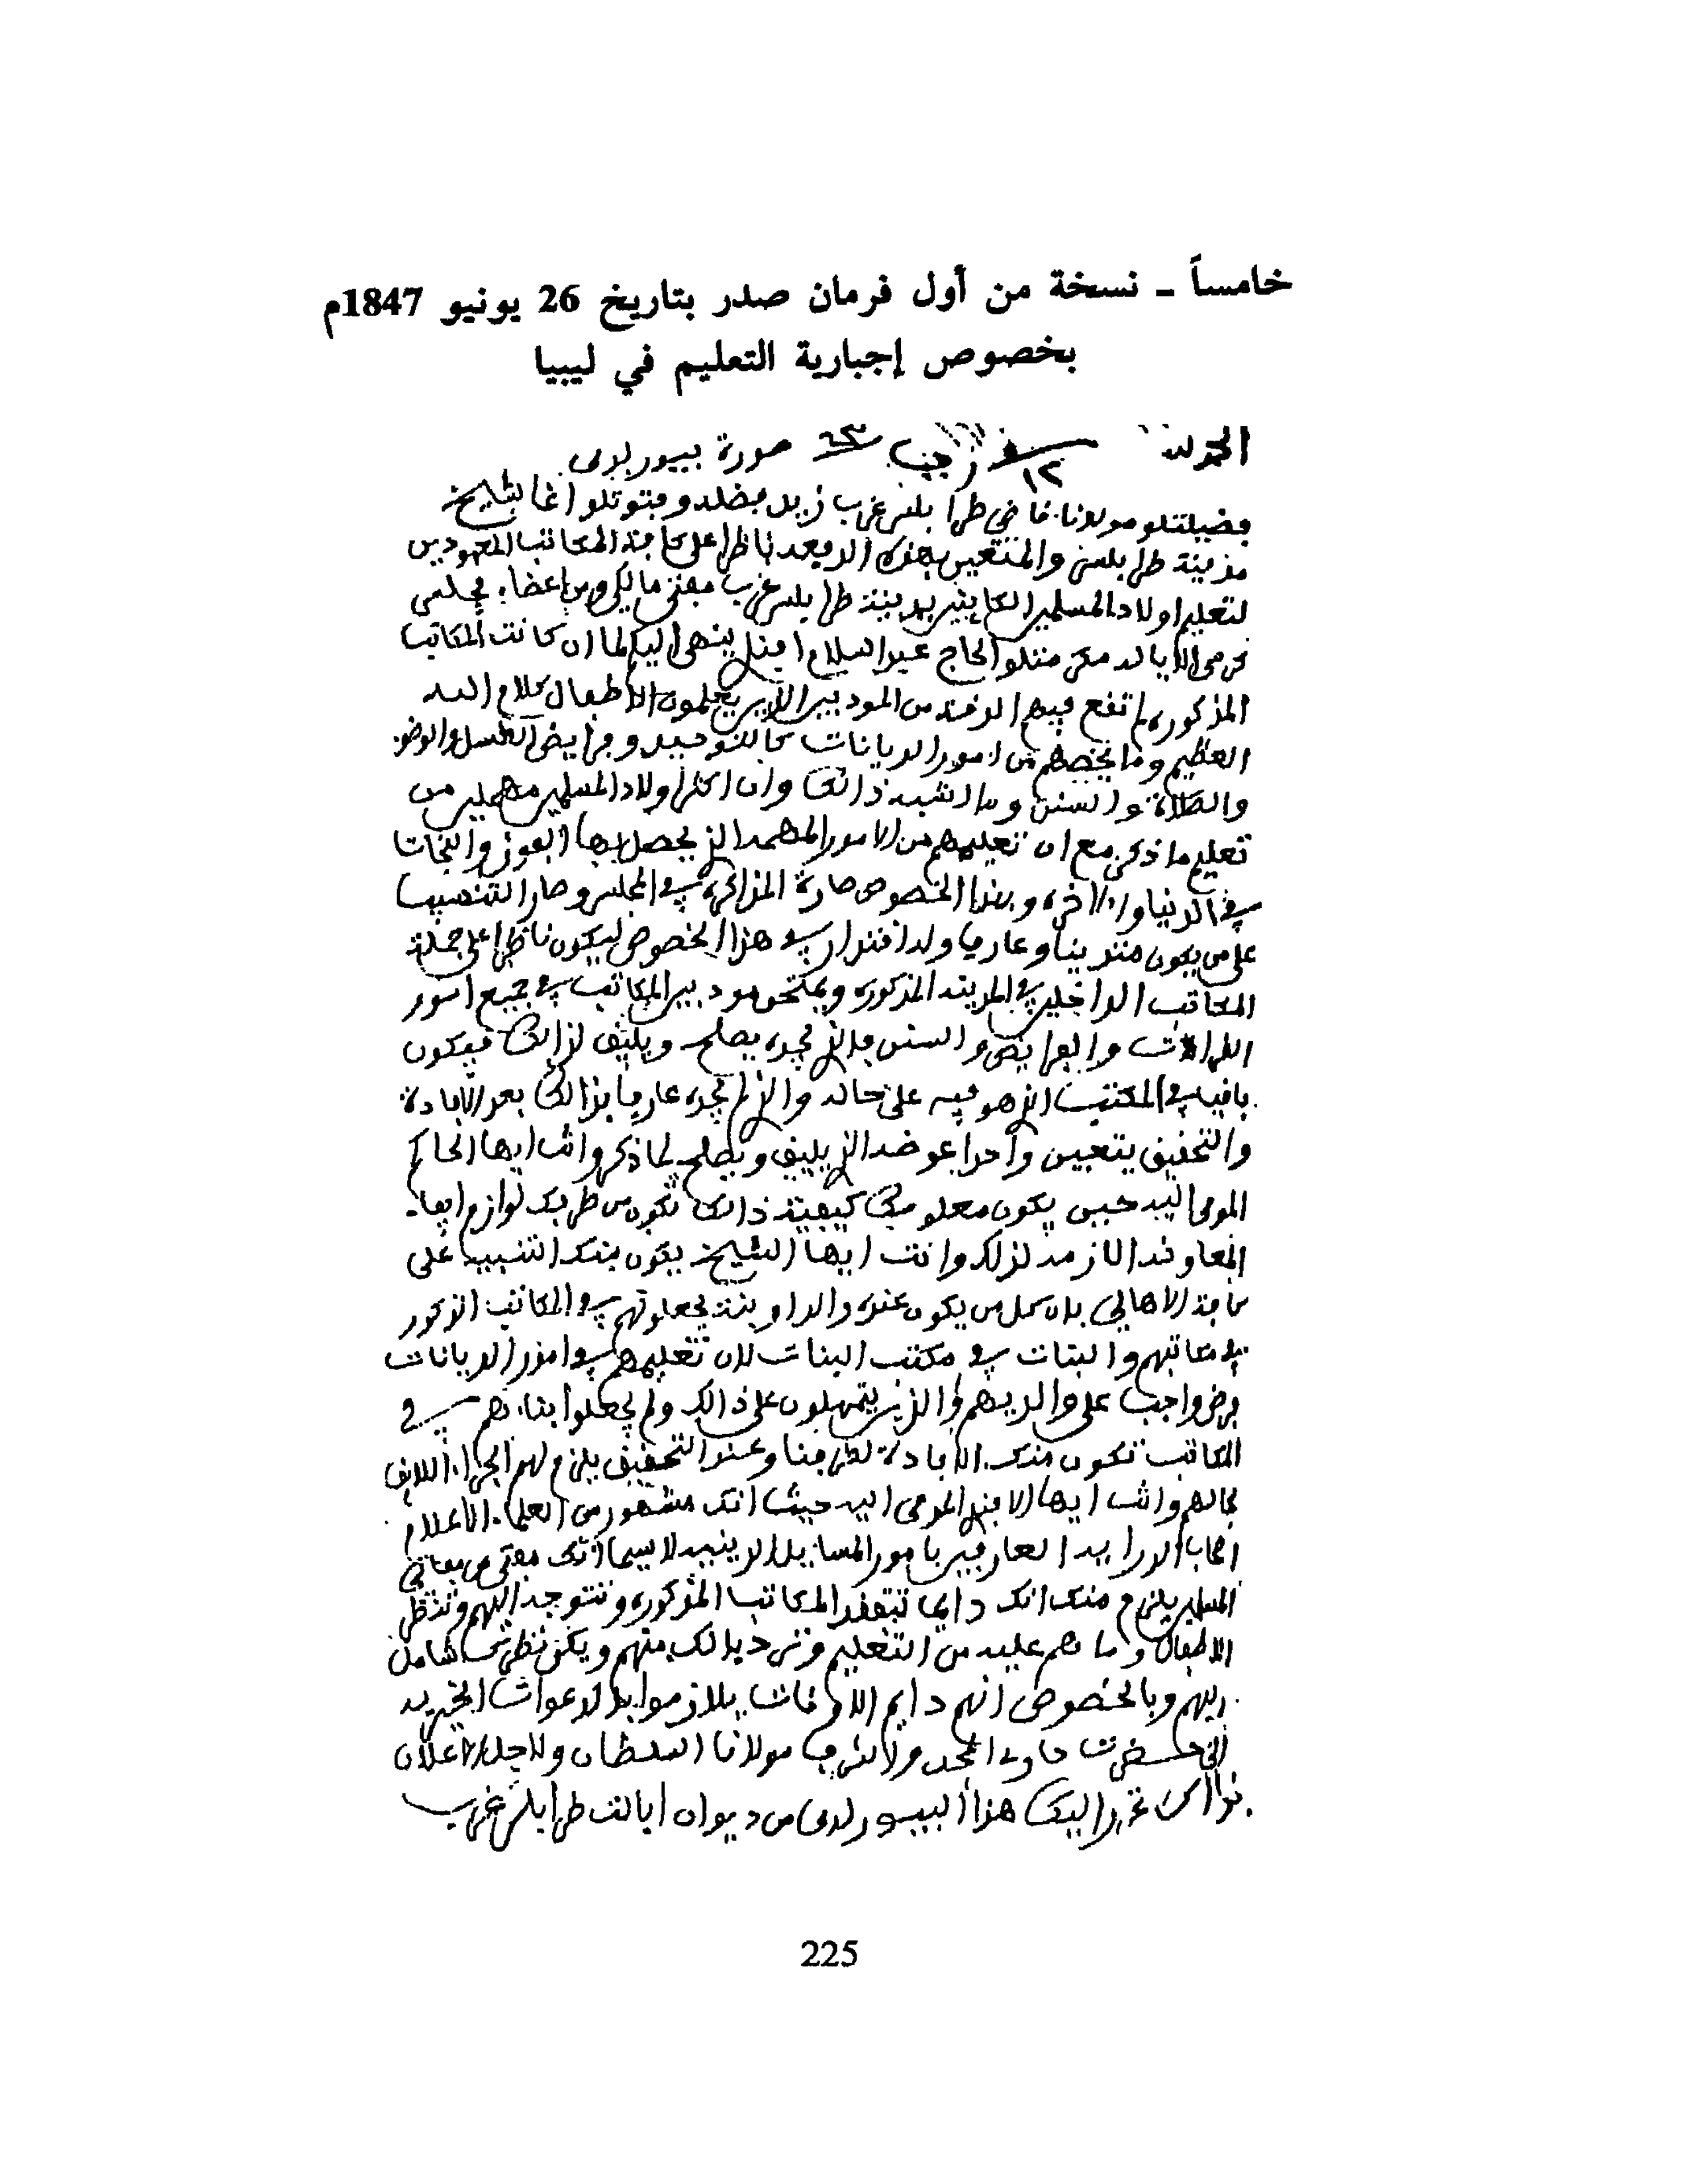 خامساً ـ نسخة من أول فرمان صدر بتاريخ 26 يونيو 1847م
بخصوص إجبارية التعليم في ليبيا
الحمد لله ١٢ رجب ٦٣ صورة بيورلدى
فضيلتلو مولانا قاضي طرابلس غرب زيد فضله وفتوتلو اغا الشيخ
مدينة طرابلس والمتعين بهذه الدفعه ناظرا على كافة المكاتب المعهودين
لتعليم اولاد المسلمين الكاينين بمدينة طرابلس غرب مفتى مالكي ومن اعضاء مجلس
الايالة الحاج عبد السلام افندي ينهى اليكم لما ان كانت المكاتب
المذكوره لم تقع فيهم الدقة من المودبين الذين يعلمون الاطفال كلام الله
العظيم وما يخصهم من امور الديانات كالتوحيد وفرايض الغسل والوضوء
والصلاة والسنن وما اشبه ذالك وان اكثر اولاد المسلمين مهملين من
تعليم ما ذكر مع ان تعليمهم من الامور المهمه الذي يحصل بها الفوز والنجات
في الدنيا والاخره وبهذا الخصوص صارة المذاكره في المجلس وصار التنصيب
على من يكون متدينا وعارفا وله اقتدار في هذا الخصوص ليكون ناظرا على جملة
المكاتب الداخلين في المدينه المذكوره ويمتحن مودبين المكاتب في جميع امور
القراءات والفرايض والسنن فالذي يجده يصلح ويليق لذالك فيكون
باقيا في المكتب الذي هو فيه على حاله والذي لم يجده عارفا بذالك بعد الافادة
والتحقيق يتعين واحدا عوضه الذي يليق ويصلح لما ذكر وانت ايها الحاكم
المومى اليه حين يكون معلومك كيفية ذالك تكون من طرفك لوازم ايفاء
المعاونه اللازمه لذلك وانت ايها الشيخ يكون منك التنبيه على
كافة الاهالي بان كل من يكون عنده ولد او بنت يجعلونهم في المكاتب الذكور
في مكاتبهم والبنات في مكتب البنات لان تعليمهم في امور الديانات
فرض واجب على والديهم والذين يتمهلون على ذالك ولم يجعلوا بناءهم في
المكاتب تكون منك الافادة لطرفنا وعند التحقيق يلزم لهم الجزاء اللايق
بحالهم وانت ايها الافندي المومى اليه حيث انك مشهور من العلماء الاعلام
اصحاب الدرايه العارفين بامور المسايل الدينيه لا سيما انك مفتى من
المسلمين يلزم منك انك دايما تتفقد المكاتب المذكوره وتتوجه اليهم وتنظر
الاطفال وما هم عليه من التعليم وترد بالك منهم ويكن نظرك شامل
اليهم وبالخصوص انهم دايم الاوقات يلازموا بالدعوات الخيريه
الى حضرت حاوي المجد والشرف مولانا السلطان ولاجل الاعلان
بذالك تحرر اليكم هذا البيورلدى من ديوان ايالت طرابلس غرب
225